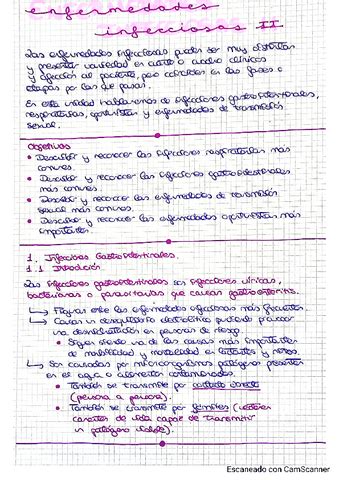 enfermedades
infecciosas II
Las enfermedades infecciosas pueden ser muy distintas
y presentar variedad en cuanto a cuadro clínico
y afección al paciente, pero coinciden en las fases o
etapas por las que pasan.
En esta unidad hablaremos de infecciones gastrointestinales,
respiratorias, oportunistas y enfermedades de transmisión
sexual.
Objetivos
• Describir y reconocer las infecciones respiratorias más
comunes.
• Describir y reconocer las infecciones gastrointestinales
más comunes.
• Describir y reconocer las enfermedades de transmisión
sexual más comunes.
• Describir y reconocer las enfermedades oportunistas más
importantes.
1. Infecciones Gastrointestinales.
1.1 Introducción
Las infecciones gastrointestinales son infecciones víricas,
bacterianas o parasitarias que causan gastroenteritis.
↳ Figuran entre las enfermedades infecciosas más frecuentes.
↳ Causan un desequilibrio electrolítico pudiendo provocar
una deshidratación en personas de riesgo.
• Sigue siendo una de las causas más importantes
de morbilidad y mortalidad en lactantes y niños.
↳ Son causadas por microorganismos patógenos presentes
en el agua o alimentos contaminados.
• También se transmite por contacto directo
(persona a persona).
• También se transmite por fómites
carente de vida capaz de transmitir
un patógeno viable).
Escaneado con CamScanner